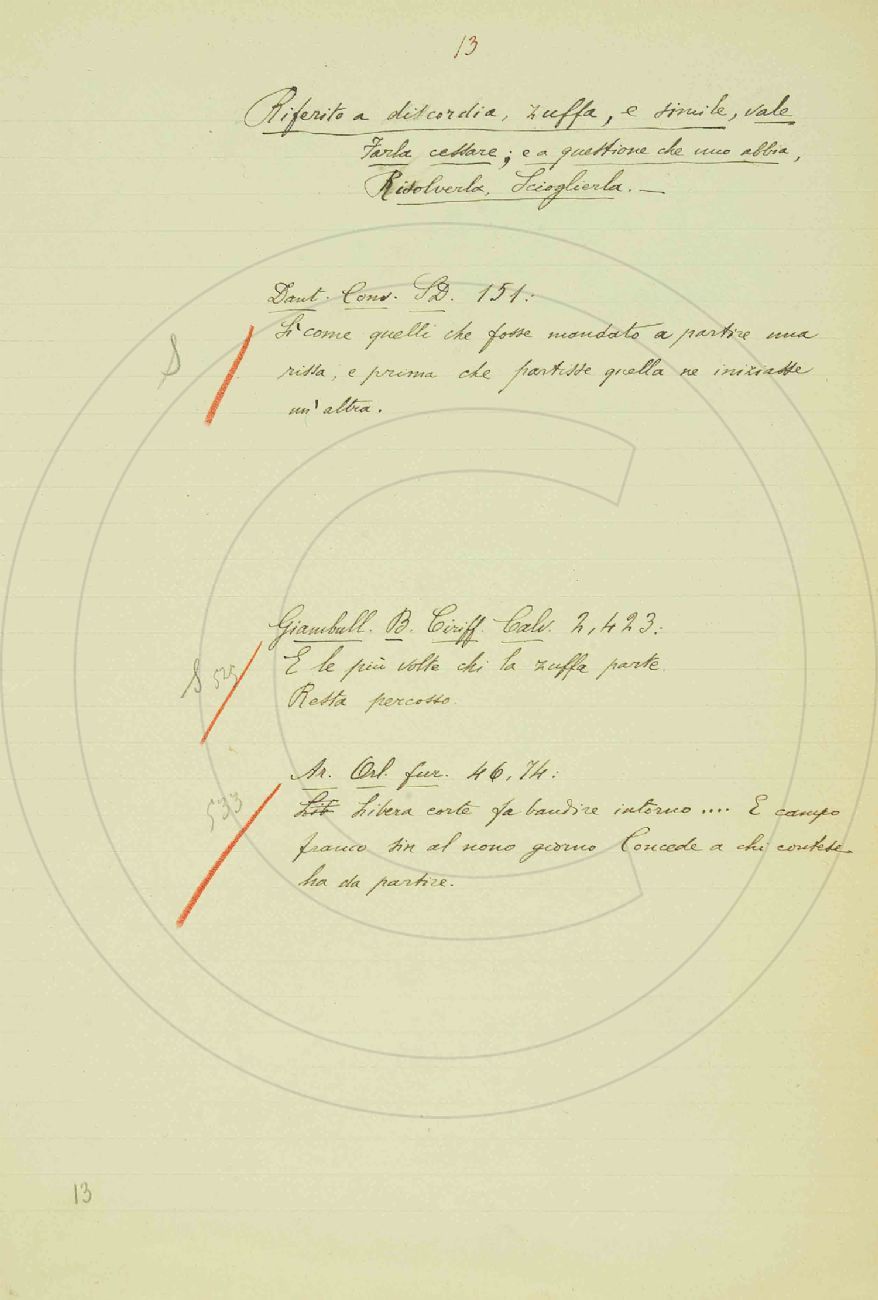 13
Riferito a discordia, zuffa, e simile, vale
Farla cessare; e a questione che uno abbia,
Risolverla, Scioglierla. —
Dant. Conv. SD. 151:
S
Sì come quelli che fosse mandato a partire una
rissa, e prima che partisse quella ne iniziasse
un' altra.
Giambull. B. Ciriff. Calv. 2, 423:
S 525
E le più volte chi la zuffa parte
Resta percosso.
Ar. Orl. fur. 46, 74:
533
Lib Libera corte fa bandire intorno .... E campo
franco sin al nono giorno Concede a chi contese
ha da partire.
13